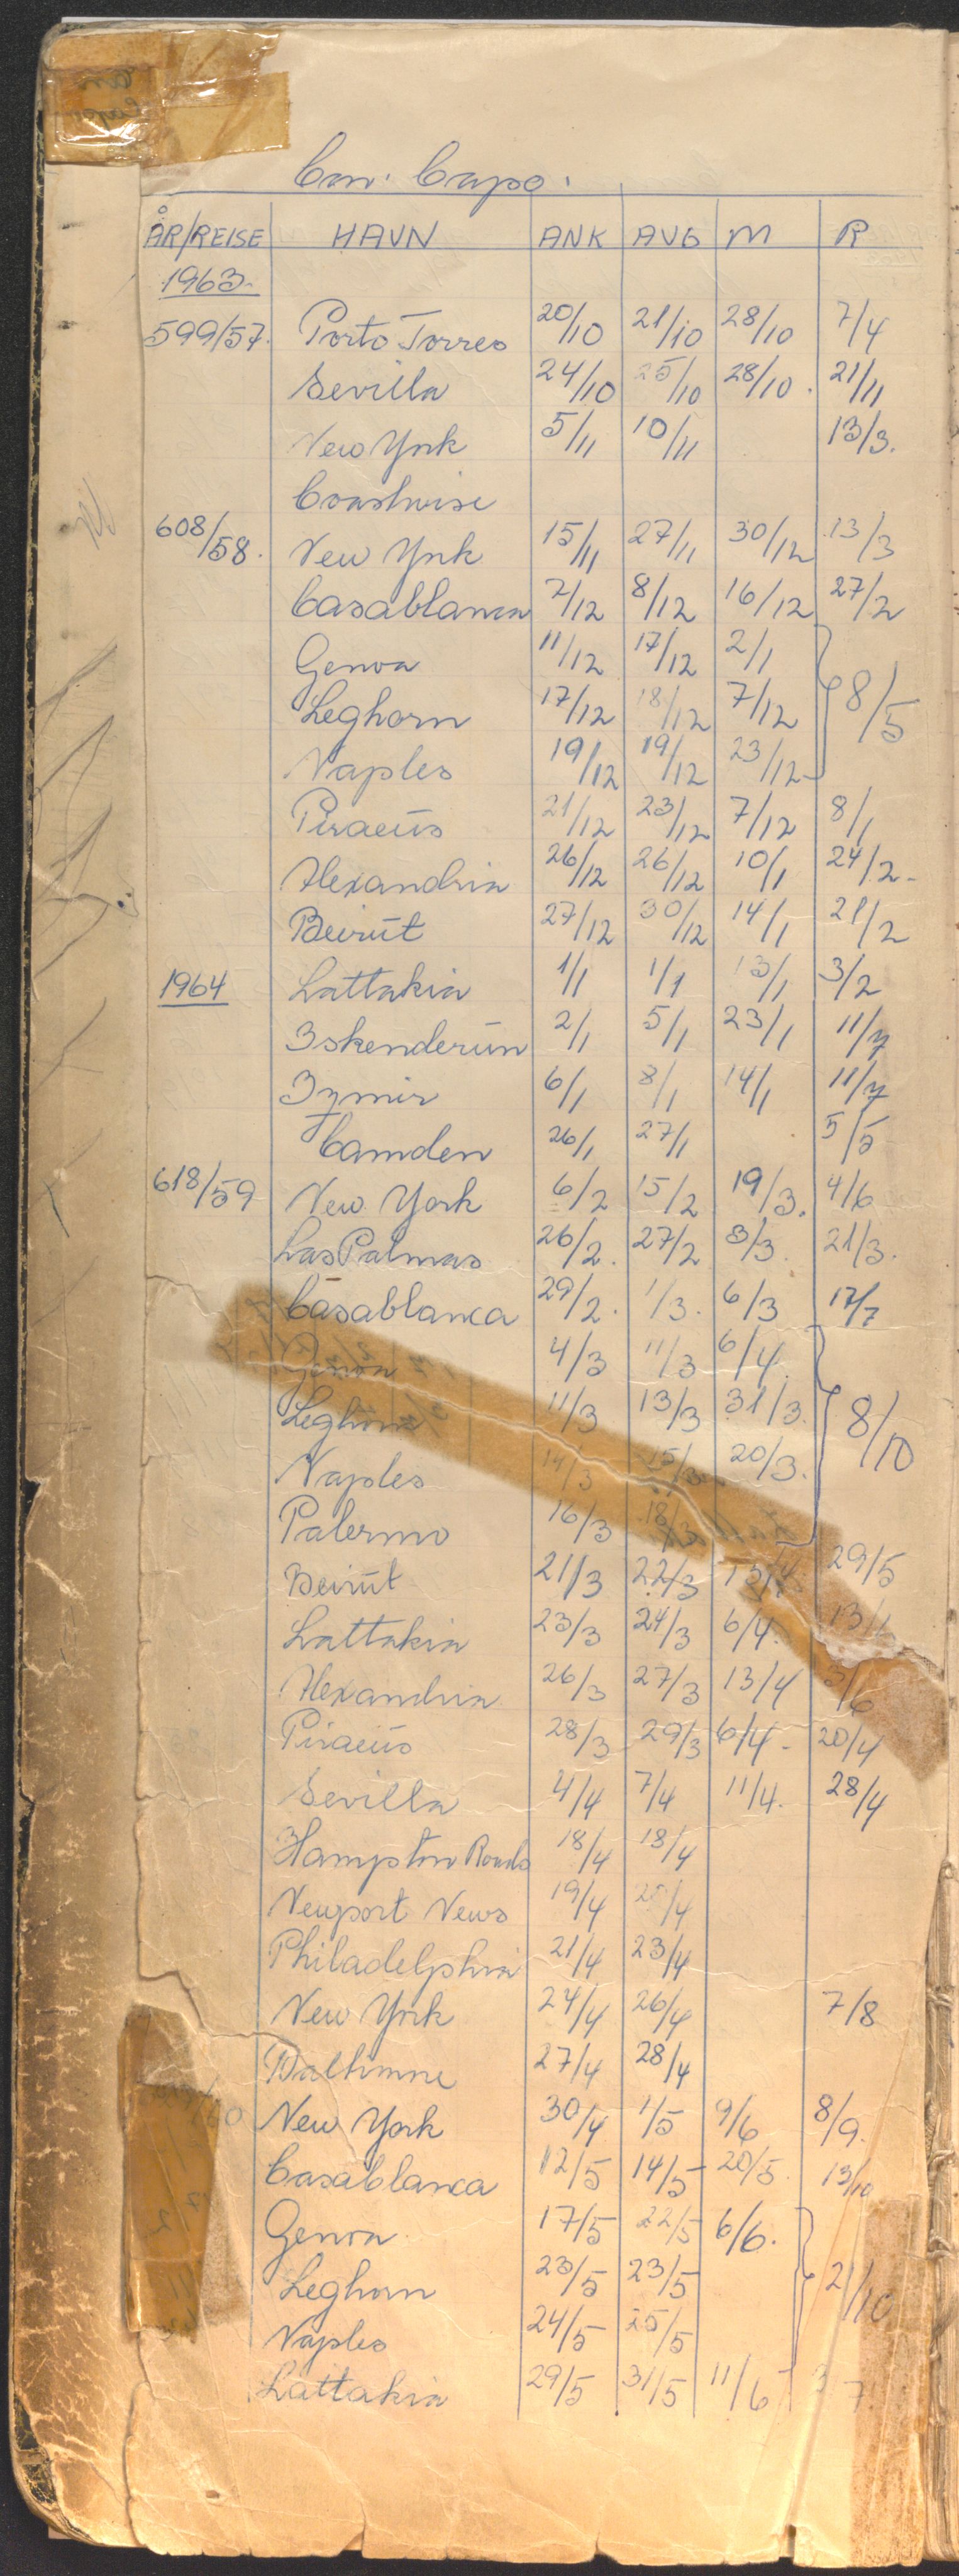 Con. Capo.
ÅR/REISE HAVN ANK AVG M R
1963
599/57. Porto Torres 20/10 21/10 28/10 7/4
Sevilla 24/10 25/10 28/10. 21/11
New York 5/11 10/11 13/3.
Coastwise
608/58. New York 15/11 27/11 30/12 13/3
Casablanca 7/12 8/12 16/12 27/2
Genoa 11/12 17/12 2/1
Leghorn 17/12 18/12 7/12 8/5
Naples 19/12 19/12 23/12
Piraeus 21/12 23/12 7/12 8/1
Alexandria 26/12 26/12 10/1 24/2-
Beirut 27/12 30/12 14/1 21/2
1964 Lattakia 1/1 1/1 13/1 3/2
Iskenderun 2/1 5/1 23/1 11/7
Izmir 6/1 8/1 14/1 11/7
Camden 26/1 27/1 5/5
618/59 New York 6/2 15/2 19/3. 4/6
Las Palmas 26/2. 27/2 3/3. 21/3.
Casablanca 29/2. 1/3. 6/3 17/7
Genoa 4/3 11/3 6/4.
Leghorn 11/3 13/3 31/3. 8/10
Naples 14/3 15/3 20/3.
Palermo 16/3 18/3
Beirut 21/3 22/3 13/4 29/5
Lattakia 23/3 24/3 6/4. 13/
Alexandria 26/3 27/3 13/4 3/6
Piraeus 28/3 29/3 6/4- 20/4
Sevilla 4/4 7/4 11/4. 28/4
Hampton Roads 18/4 18/4
Newport News 19/4 20/4
Philadelphia 21/4 23/4
New York 24/4 26/4 7/8
Baltimore 27/4 28/4
New York 30/4 1/5 9/6 8/9.
Casablanca 12/5 14/5 20/5. 13/10
Genoa 17/5 22/5 6/6.
Leghorn 23/5 23/5 21/10
Naples 24/5 25/5
Lattakia 29/5 31/5 11/6 3 7